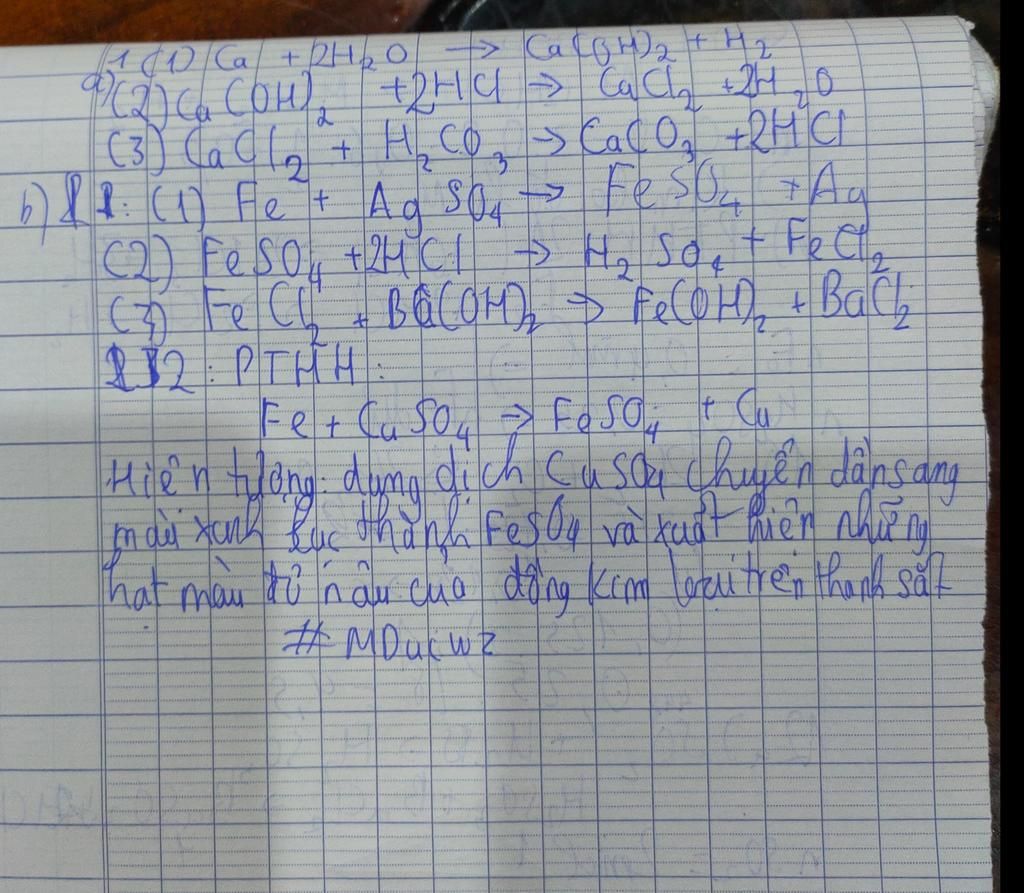 1 (1) Ca + 2H₂O → Ca(OH)₂ + H₂
a) (2) Ca(OH)₂ + 2HCl → CaCl₂ + 2H₂O
(3) CaCl₂ + H₂CO₃ → CaCO₃ + 2HCl
b) 1: (1) Fe + AgSO₄ → FeSO₄ + Ag
(2) FeSO₄ + 2HCl → H₂SO₄ + FeCl₂
(3) FeCl₂ + Ba(OH)₂ → Fe(OH)₂ + BaCl₂
2: PTHH:
Fe + CuSO₄ → FeSO₄ + Cu
Hiện tượng: dung dịch CuSO₄ chuyển dần sang
màu xanh lục thành FeSO₄ và xuất hiện những
hạt màu đỏ nâu của đồng kim loại trên thanh sắt
# MDucwz